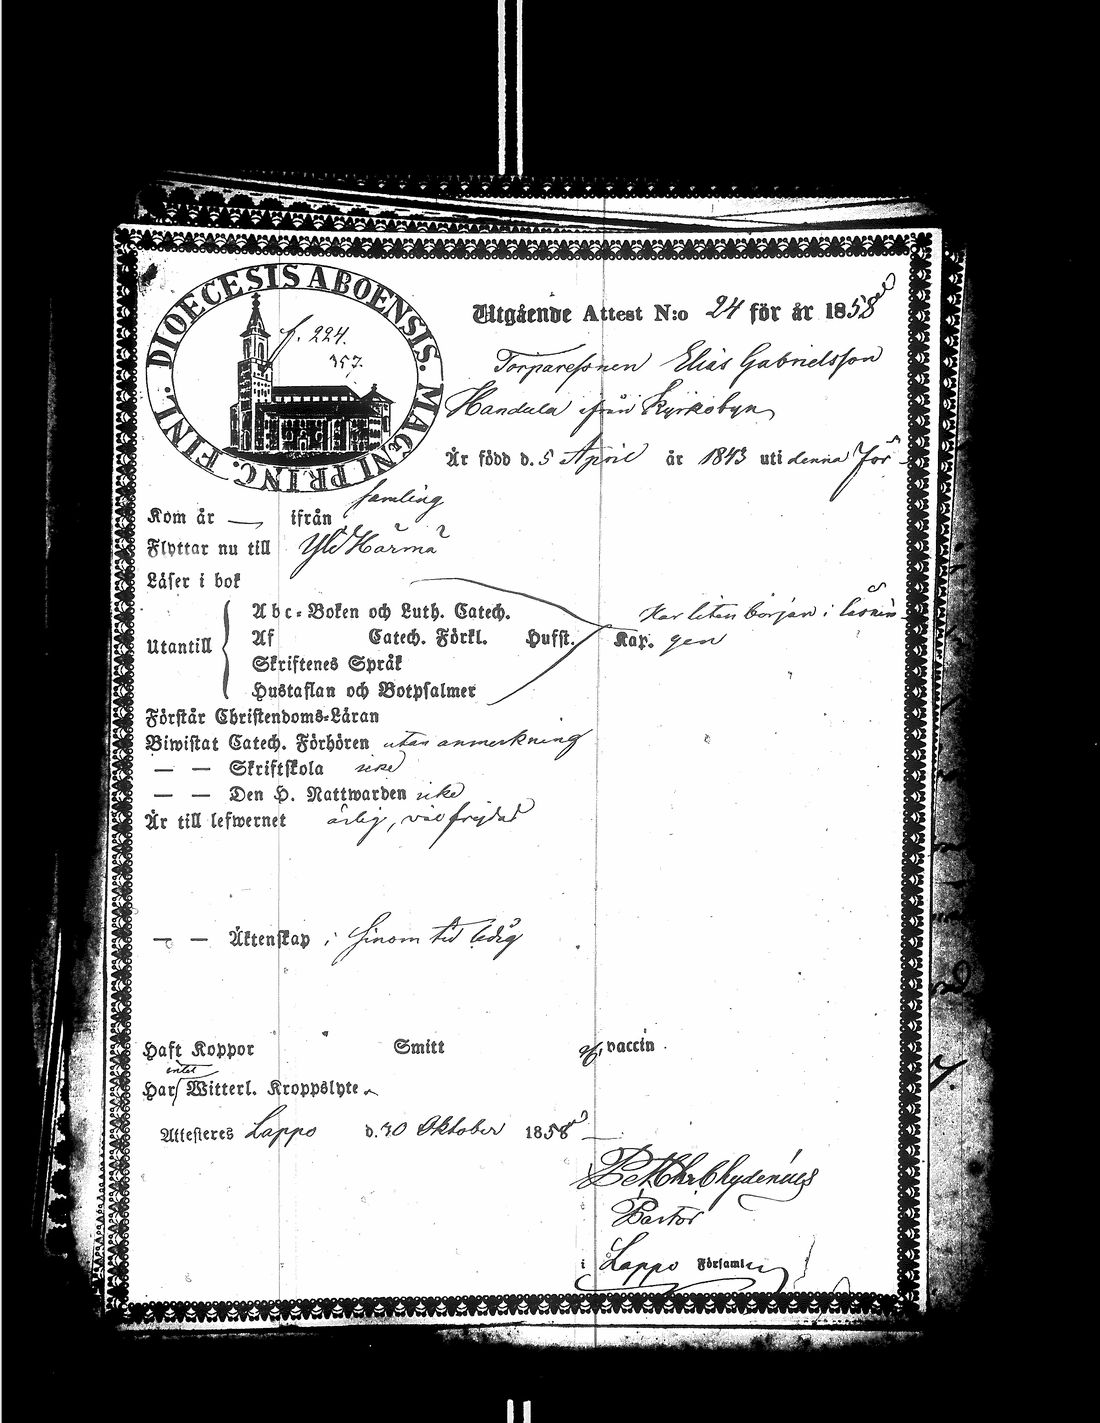 DIOECESIS ABOENSIS. MAGNI PRINC. FINL.
f. 224.
357.
Utgående Attest N:o 24 för år 1858
Torparesonen Elias Gabrielsson
Handula ifrån Kyrkobyn
Är född d. 5 April år 1843 uti denna För-
samling
Kom år — ifrån
Flyttar nu till Yli Härmä
Läser i bok
Abc-Boken och Luth. Catech. Har liten början i läsnin-
Utantill Af Catech. Förkl. Hufst. Kap. gen
Skriftenes Språk
Hustaflan och Botpsalmer
Förstår Christendoms-Läran
Biwistat Catech. Förhören utan anmerkning
— — Skriftskola icke
— — Den H. Nattwarden icke
Är till lefwernet ärlig, väl frejdad
— — Äktenskap i ledig
Haft Koppor Smitt af vaccin
intet
Har Witterl. Kroppslyte
Attesteras Lappo d. 30 Oktober 1858
Chydenius
Pastor
i Lappo Församling